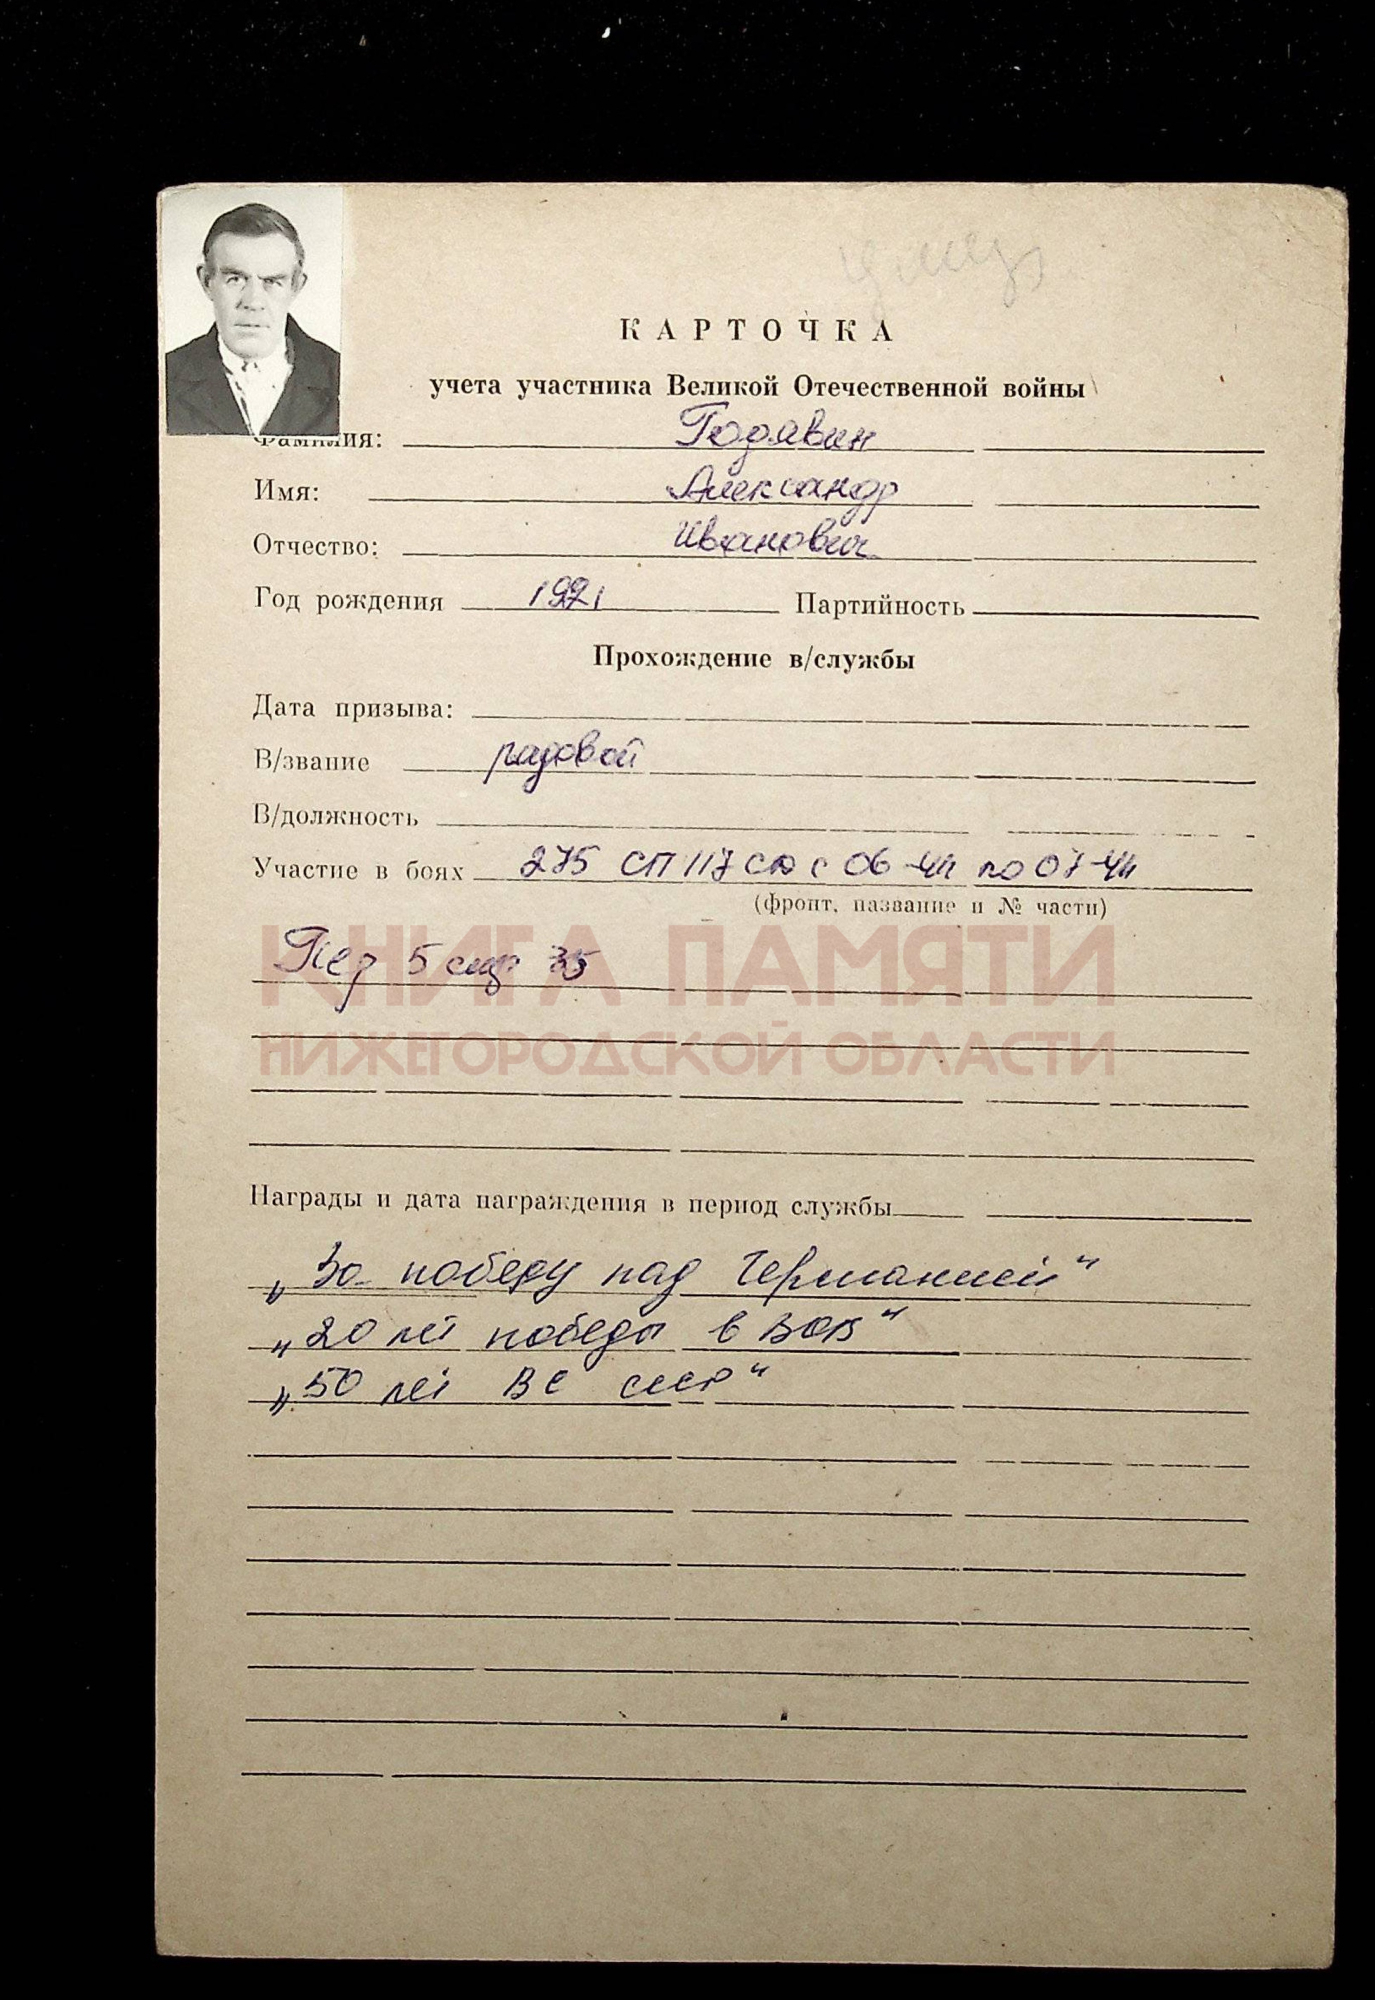 КАРТОЧКА
учета участника Великой Отечественной войны
Фамилия: Годявин
Имя: Александр
Отчество: Иванович
Год рождения 1921 Партийность
Прохождение в/службы
Дата призыва:
В/звание рядовой
В/должность
Участие в боях 275 СП 117 СД с 06-44 по 07-44
(фронт, название и № части)
КНИГА ПАМЯТИ
5 35
НИЖЕГОРОДСКОЙ ОБЛАСТИ
Награды и дата награждения в период службы
„За победу над Германией“
„20 лет победы в ВОВ“
„50 лет ВС СССР“